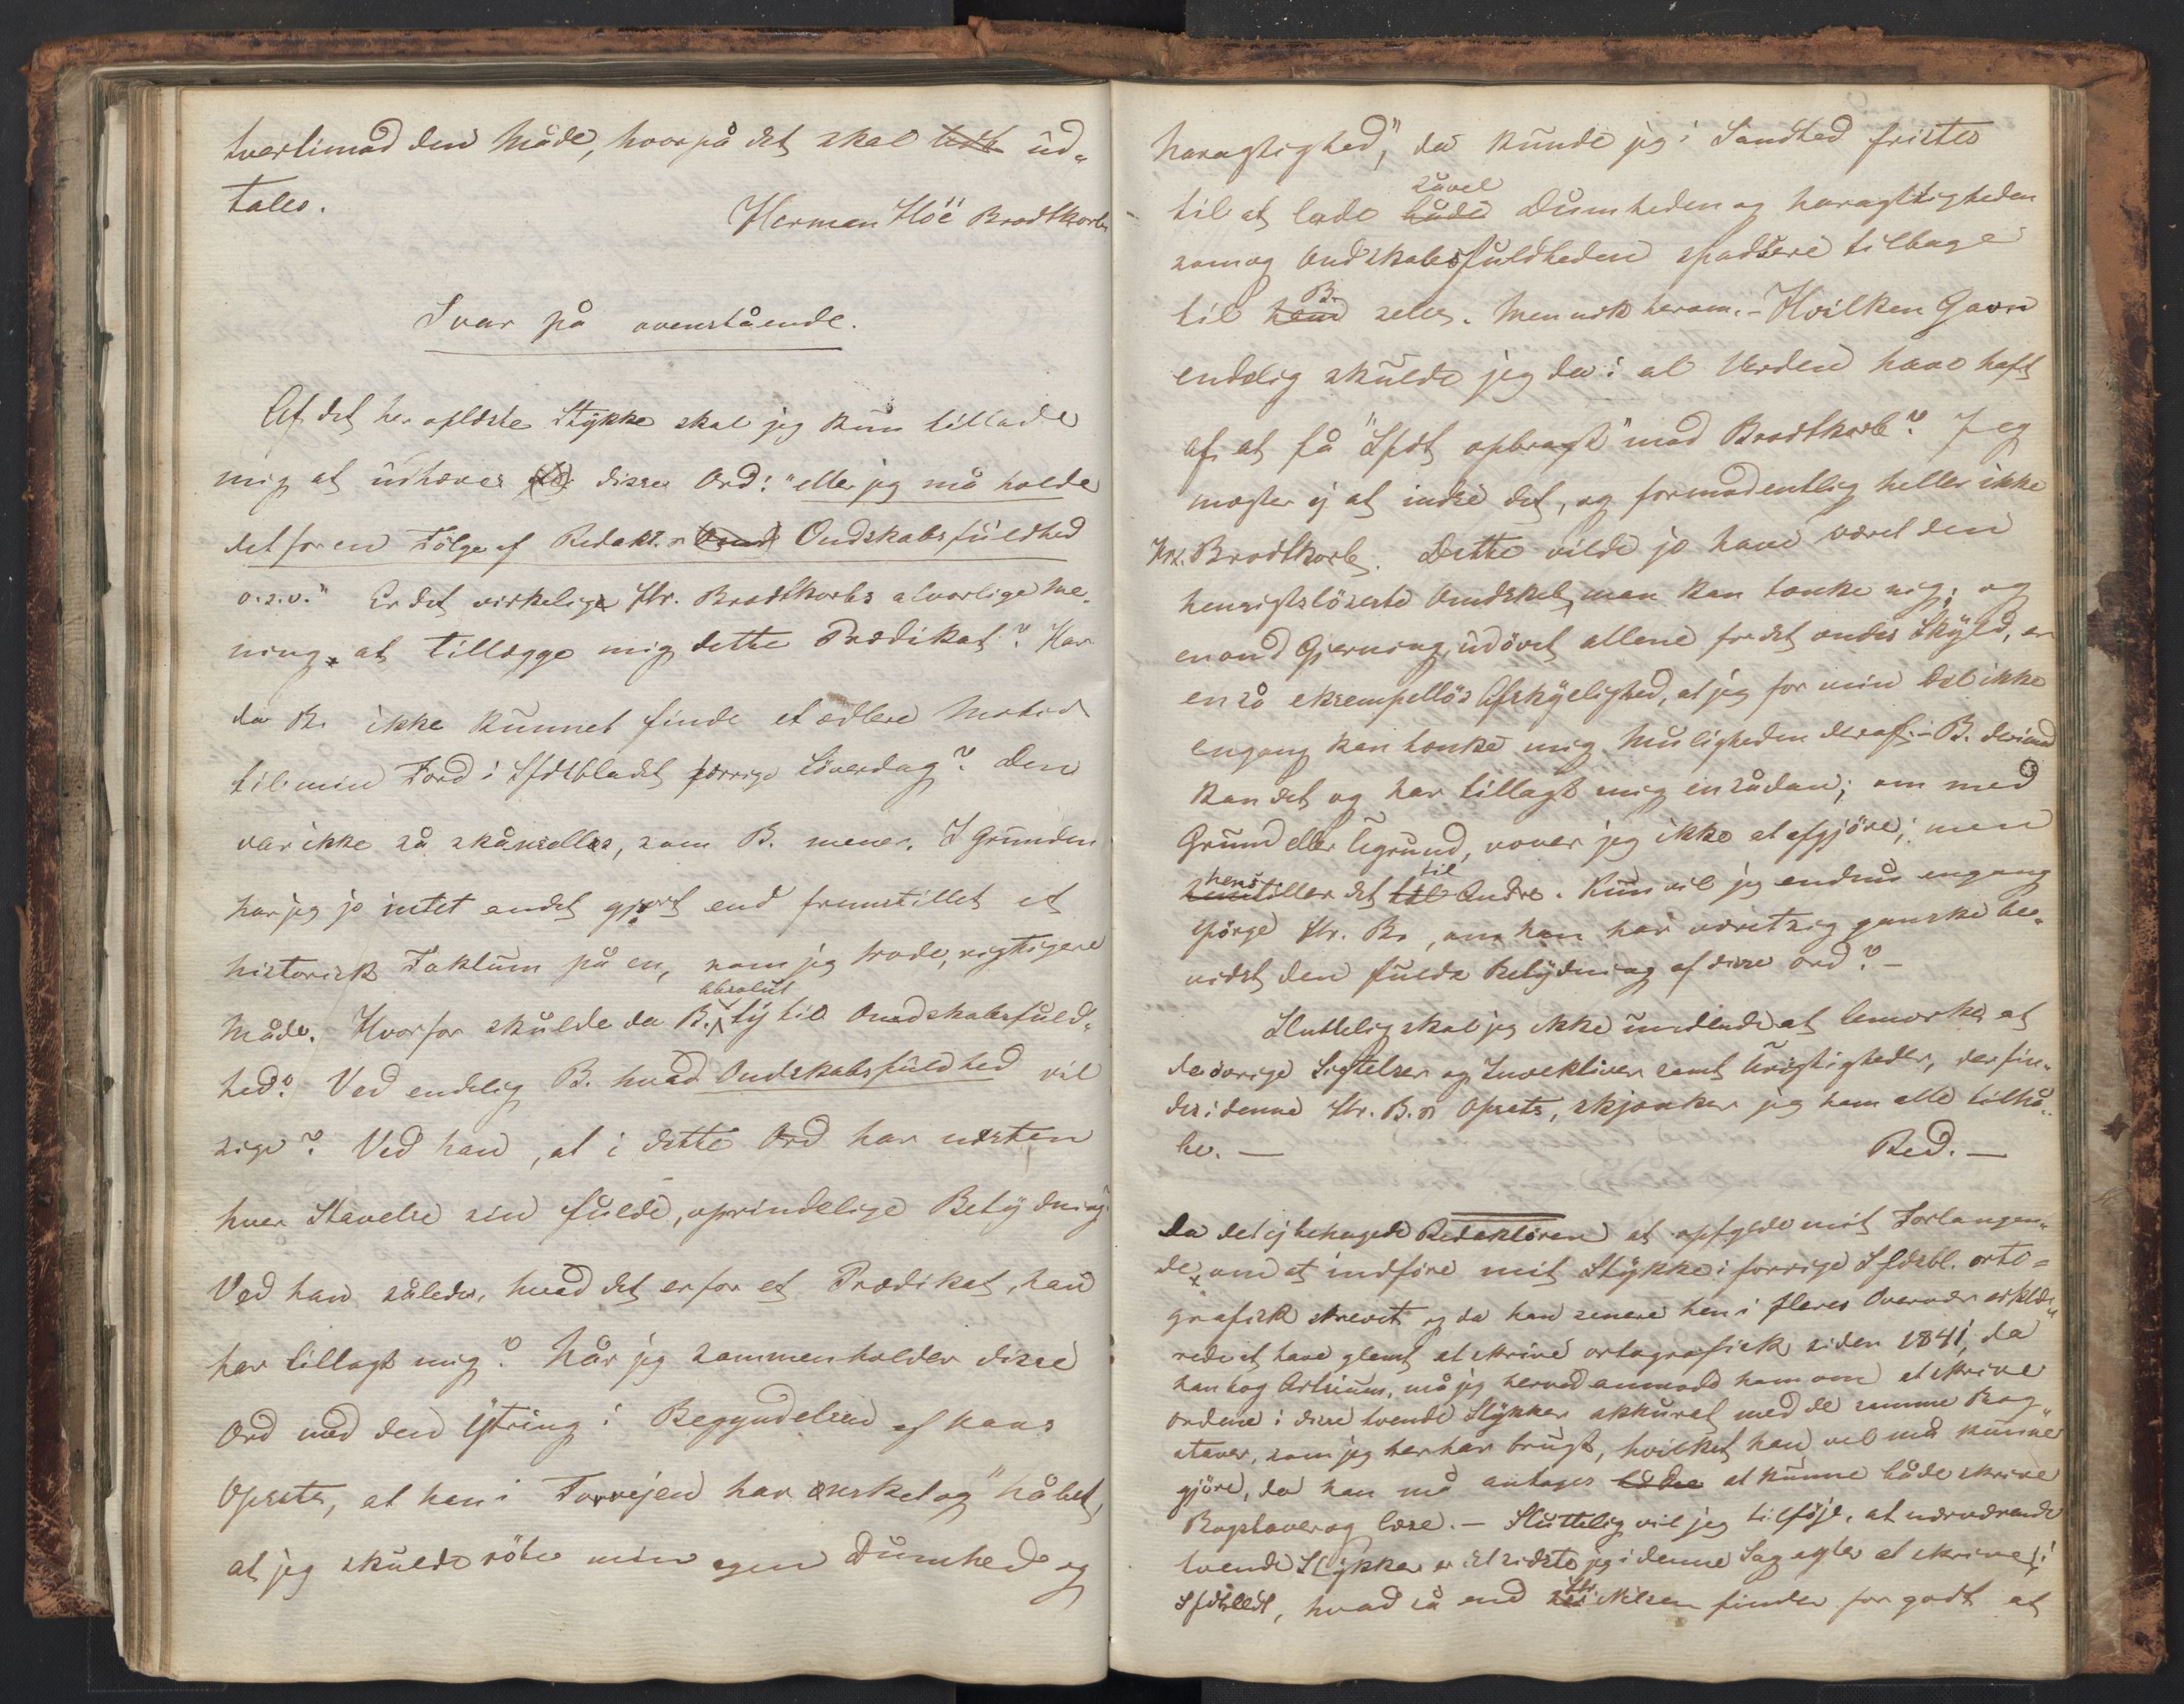 tvertimod den Måde, hvorpå det skal ud-
tales.
Herman Höë Brodtkorb
Svar på ovenstående.
Af det her oplæste Stykke skal jeg kun tillade
mig at udhæve disse Ord: "eller jeg må holde
det for en Følge af Redakt.s Ondskabsfuldhed
o.s.v." Er det virkelig Hr. Brodtkorbs alvorlige Me-
ning, at tillægge mig dette Prædikat? Har
da B. ikke kunnet finde et ædlere Motiv
til min Færd i Sfdsbladet forrige Löverdag? Den
var ikke så skånsellös, som B. mener. I Grunden
har jeg jo intet andet gjort end fremstillet et
historisk Faktum på en, som jeg trode, rigtigere
Måde. Hvorfor skulde da B. absolut ty til Ondskabsfuld-
hed? Ved endelig B. hvad Ondskabsfuldhed vil
sige? Ved han, at i dette Ord har næsten
hver Stavelse sin fulde, oprindelige Betydning?
Ved han således, hvad det er for et Prædikat, han
har tillagt mig? Når jeg sammenholder disse
Ord med den Ytring i Begyndelsen af hans
Opsats, at han i Forvejen har önsket og "håbet,
at jeg skulde röbe min egen Dumhed og
haragtighed," da kunde jeg i Sandhed fristes
til at lade såvel Dumheden og haragtigheden
som og Ondskabsfuldheden spadsere tilbage
til B. selv. Men nok herom. - Hvilken Gavn
endelig skulde jeg da i al Verden have haft
af at få "Sfdt opbragt" mod Brodtkorb? Jeg
mægter ej at indse det, og formodentlig heller ikke
Hr. Brodtkorb. Dette vilde jo have været den
hensigtslöseste Ondskab, man kan tænke sig; og
en ond Gjerning, udövet allene for det ondes Skyld, er
en så eksempellös Afskyelighed, at jeg for min Del ikke
engang kan tænke mig Muligheden deraf. - B. derimod
kan det og har tillagt mig en sådan; om med
Grund eller Ugrund, vover jeg ikke at afgjöre; men
henstiller det til Andre. Kun vil jeg endnu engang
spörge Hr. B., om han har været sig ganske be-
vidst den fulde Betydning af disse Ord? -
Sluttelig skal jeg ikke undlade at bemærke, at
de övrige Sigtelser og Invektiver samt Urigtigheder, der fin-
des i denne Hr. B.s Opsats, skjænker jeg ham alle tilhå-
be. -
Red. -
Da det ej behagede Redaktören at opfylde mit Forlangen-
de om at indföre mit Stykke i forrige Sfdsbl. orto-
grafisk skrevet og da han senere hen i fleres Overvær erklæ-
rede at have glemt at skrive ortografisk siden 1841, da
han tog Artium, må jeg herved anmode ham om at skrive
ordene i disse tvende Stykker akkurat med de samme Bog-
staver, som jeg her har brugt, hvilket han vel må kunne
gjöre, da han må antages at kunne både skrive
Bogstaver og læse. - Sluttelig vil jeg tilföje, at nærværende
tvende Stykker er det sidste jeg i denne Sag agter at skrive i
Sfdsbladt, hvad så end Hr. Nilsen finder for godt at